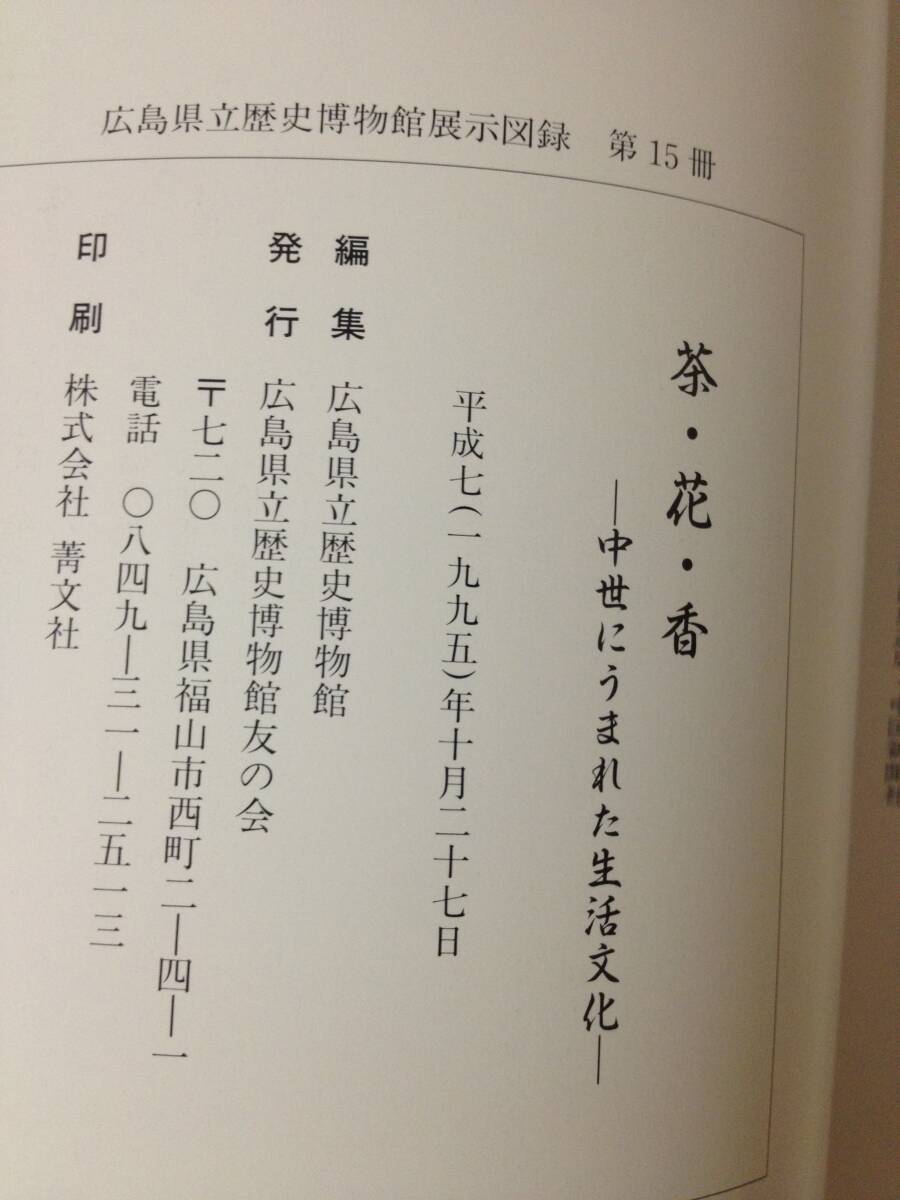 広島県立歴史博物館展示図録　第15冊
茶・花・香
―中世にうまれた生活文化―
平成七(一九九五)年十月二十七日
編集　広島県立歴史博物館
発行　広島県立歴史博物館友の会
〒七二〇　広島県福山市西町二―四―一
電話　〇八四九―三一―二五一三
印刷　株式会社 菁文社